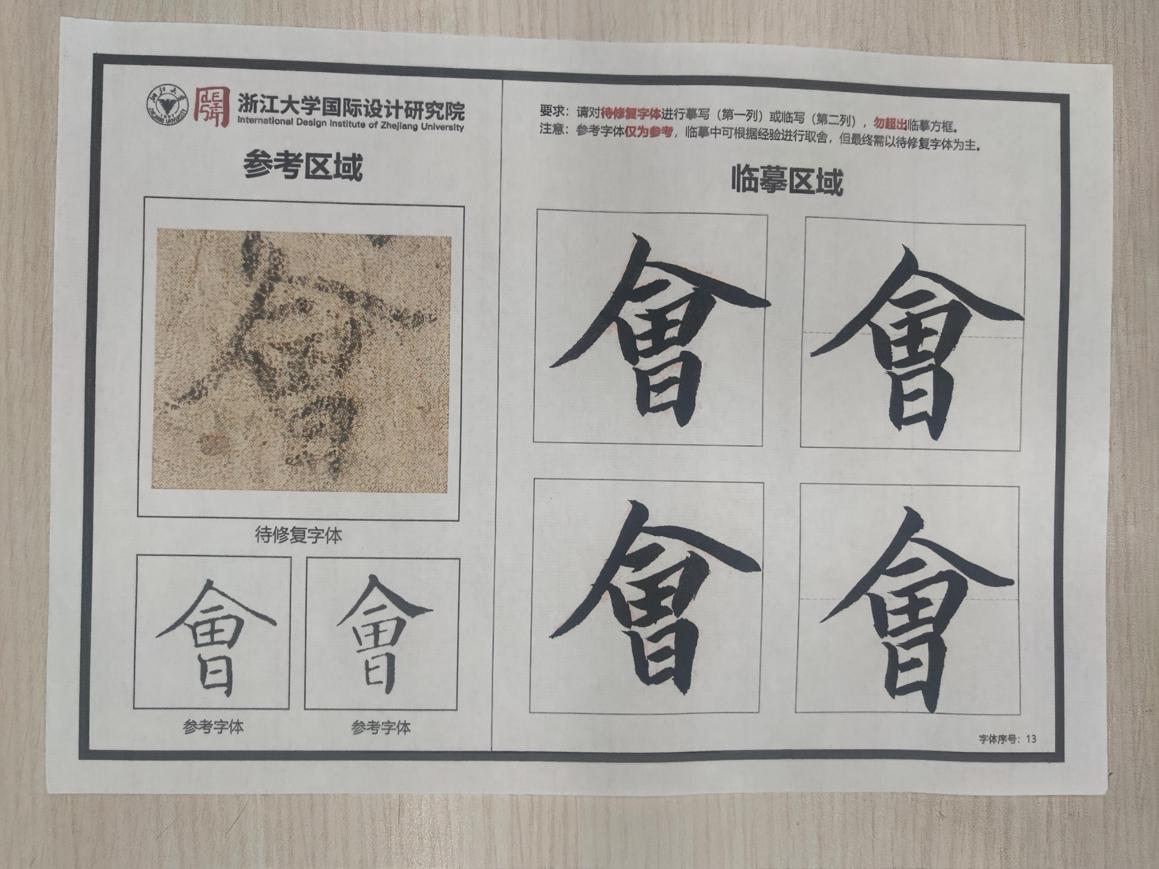 浙江大学国际设计研究院
International Design Institute of Zhejiang University
参考区域
會
待修复字体
會
會
参考字体
参考字体
要求：请对待修复字体进行摹写（第一列）或临写（第二列），勿超出临摹方框。
注意：参考字体仅为参考，临摹中可根据经验进行取舍，但最终需以待修复字体为主。
临摹区域
會
會
會
會
字体序号：13